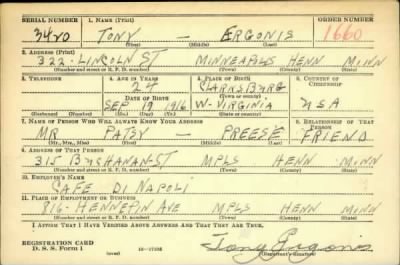 SERIAL NUMBER 1. NAME (Print) ORDER NUMBER
3420 TONY — ERGONIS 1660
(First) (Middle) (Last)
2. ADDRESS (Print)
322 - LINCOLN ST MINNEAPOLIS HENN MINN
(Number and street or R. F. D. number) (Town) (County) (State)
3. TELEPHONE 4. AGE IN YEARS 5. PLACE OF BIRTH 6. COUNTRY OF CITIZENSHIP
24 CLARKSBURG
DATE OF BIRTH (Town or county)
SEP 19 1916 W-VIRGINIA USA
(Exchange) (Number) (Mo.) (Day) (Yr.) (State or country)
7. NAME OF PERSON WHO WILL ALWAYS KNOW YOUR ADDRESS 8. RELATIONSHIP OF THAT PERSON
MR PATSY — PREESE FRIEND
(Mr., Mrs., Miss) (First) (Middle) (Last)
9. ADDRESS OF THAT PERSON
315 BUCHANAN ST MPLS HENN MINN
(Number and street or R. F. D. number) (Town) (County) (State)
10. EMPLOYER'S NAME
CAFE DI NAPOLI
11. PLACE OF EMPLOYMENT OR BUSINESS
816 - HENNEPIN AVE MPLS HENN MINN
(Number and street or R. F. D. number) (Town) (County) (State)
I AFFIRM THAT I HAVE VERIFIED ABOVE ANSWERS AND THAT THEY ARE TRUE.
REGISTRATION CARD
D. S. S. FORM 1 (over) 16—17105 Tony Ergonis
(Registrant's signature)